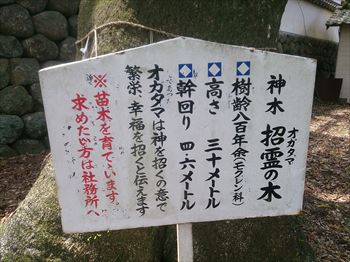 神木 招霊の木
オガタマ
樹齢八百年余(モクレン科)
高さ 三十メートル
幹回り 四.六メートル
オガタマは神を招くの意で
繁栄、幸福を招くと伝えます
※苗木を育てています。
求めたい方は社務所へ